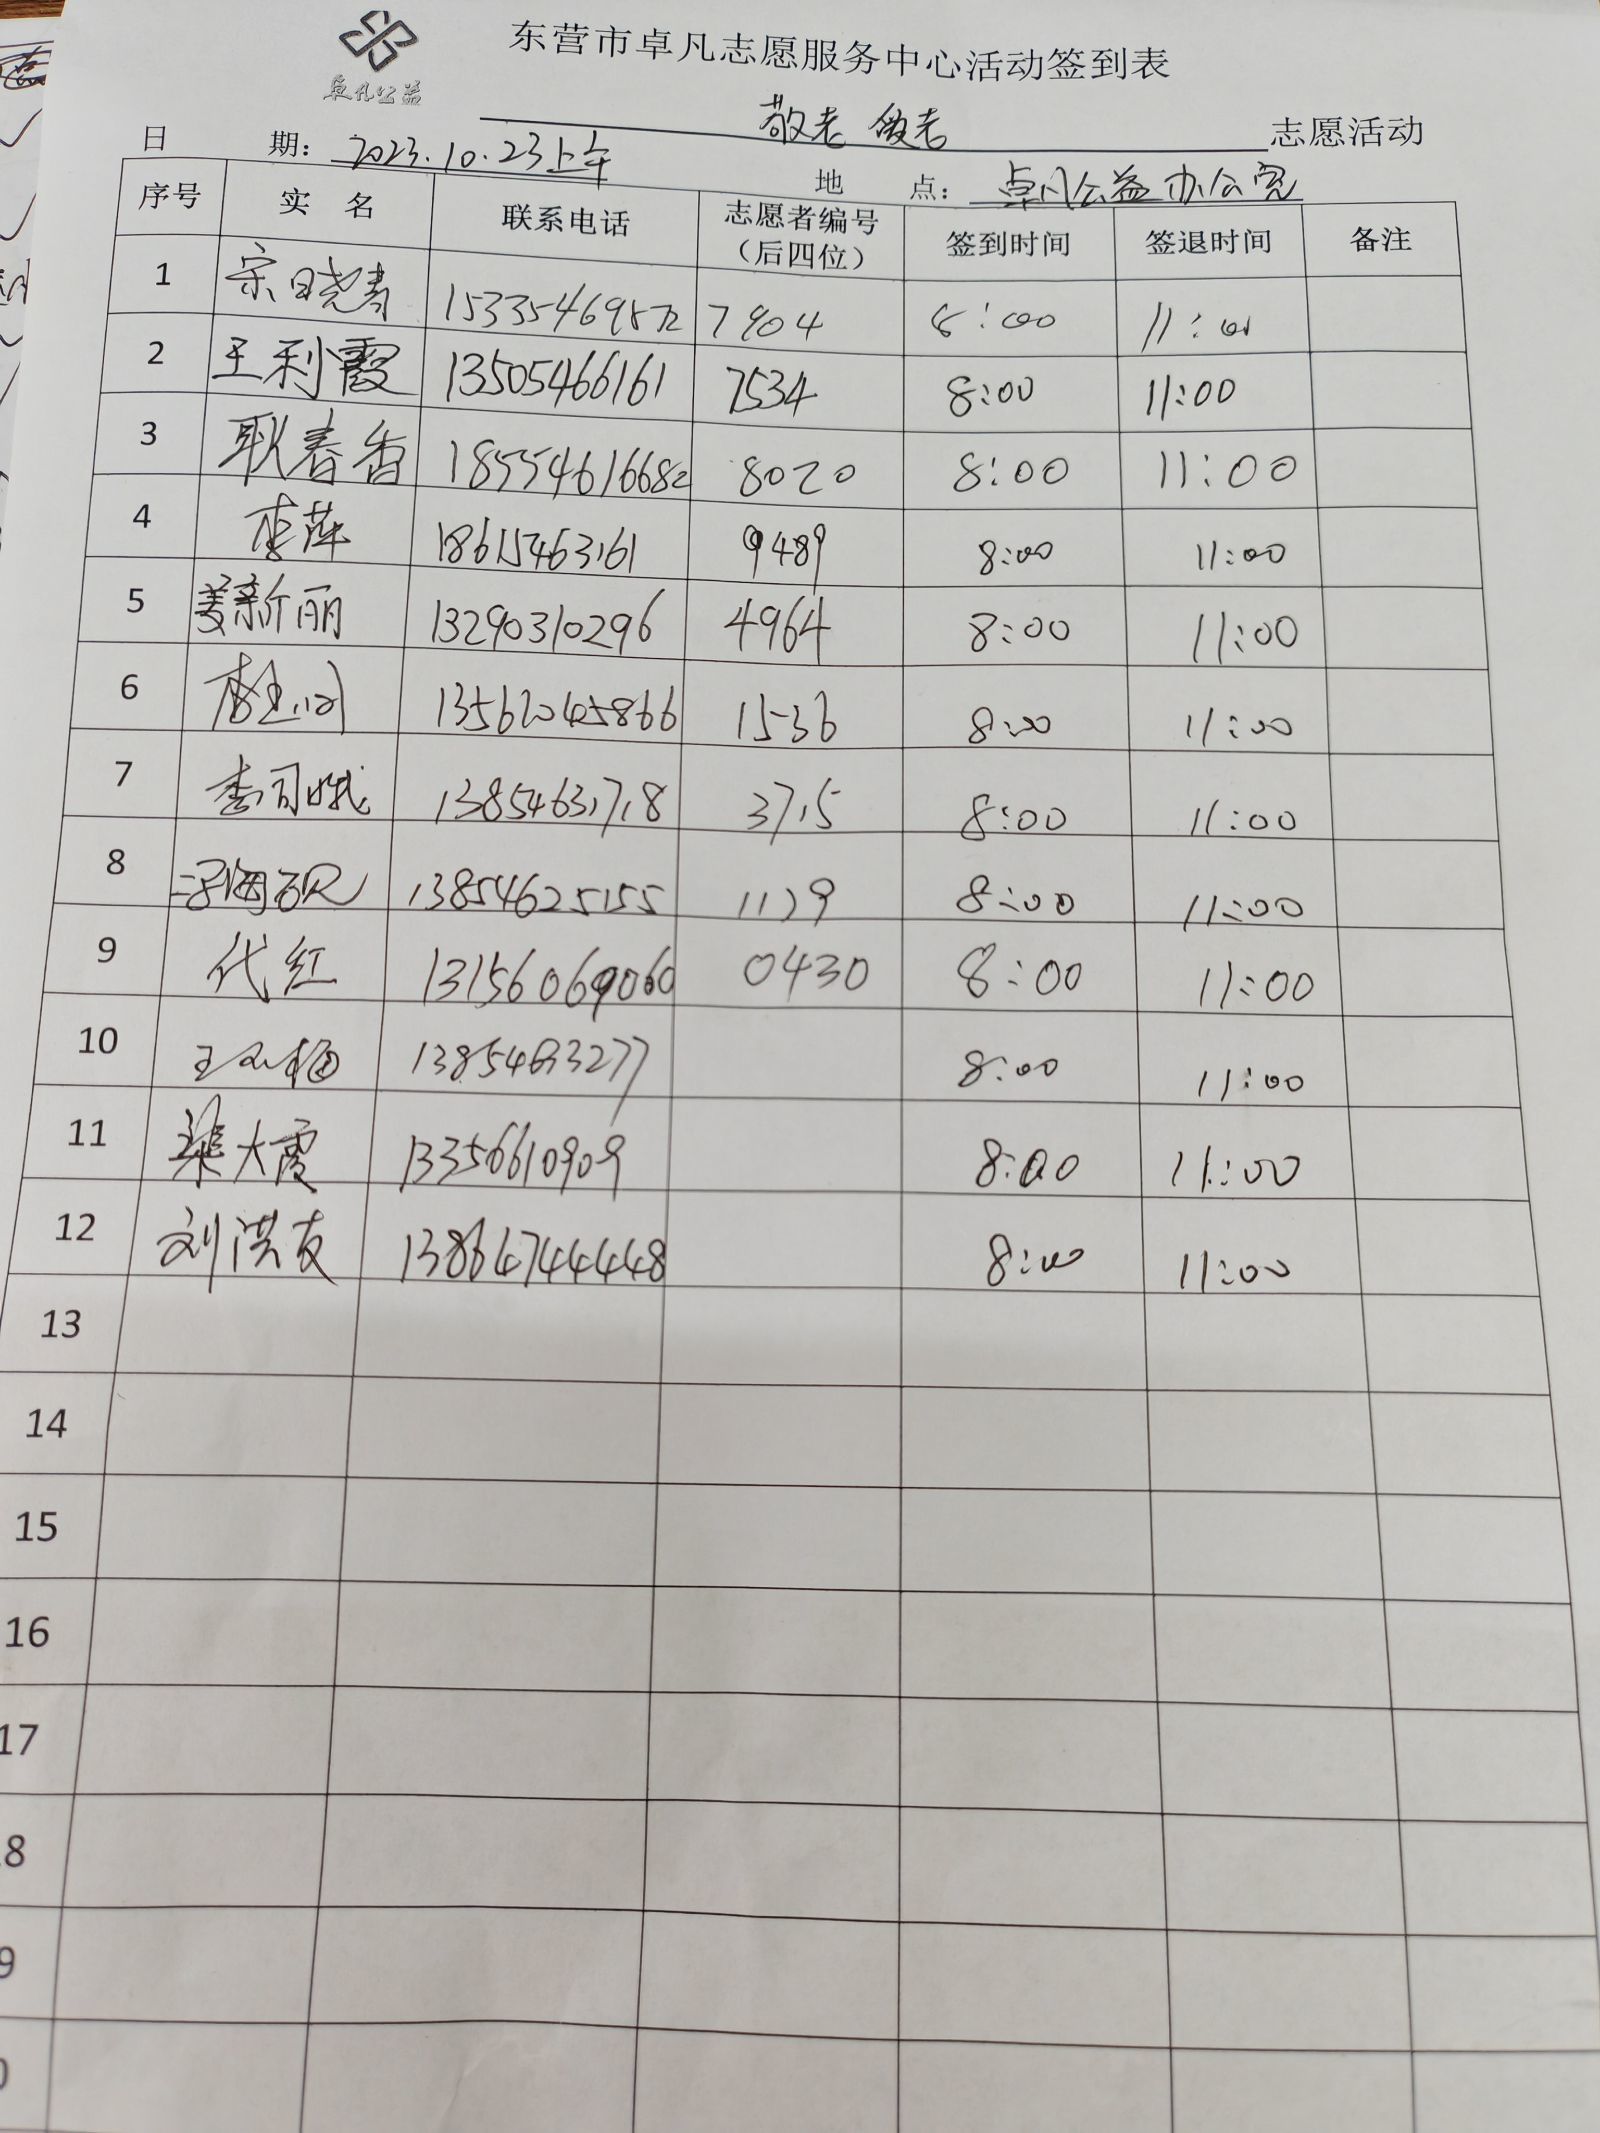 东营市卓凡志愿服务中心活动签到表
卓凡公益
敬老 志愿活动
日 期: 2023.10.23上午
地 点: 卓凡公益办公室
序号 实 名 联系电话 志愿者编号（后四位） 签到时间 签退时间 备注
1 宋晓青 7904 8:00 11:00
2 王利霞 13505466161 7534 8:00 11:00
3 耿春香 18554616682 8020 8:00 11:00
4 李萍 18615463161 9489 8:00 11:00
5 姜新丽 13290310296 4964 8:00 11:00
6 13562045866 1536 8:00 11:00
7 李司娥 13854631718 3715 8:00 11:00
8 13854625155 1129 8:00 11:00
9 代红 13156069060 0430 8:00 11:00
10 8:00 11:00
11 梁大霞 13356610909 8:00 11:00
12 刘洪友 13864744448 8:00 11:00
13
14
15
16
17